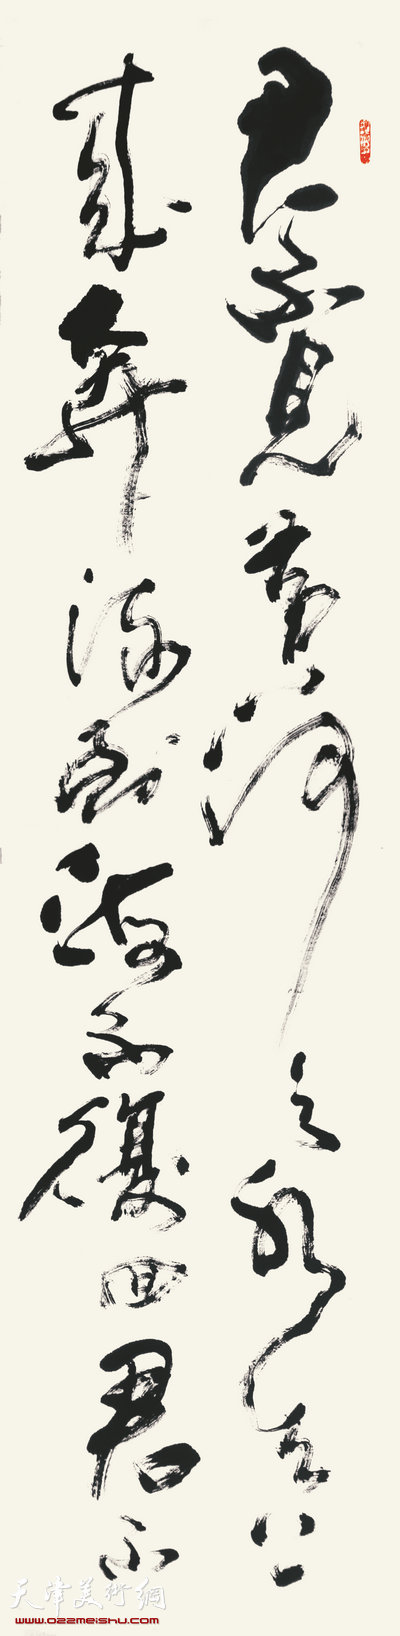 君不见黄河之水天上
来奔流到海不復回君不
天津美術網
www.022meishu.com